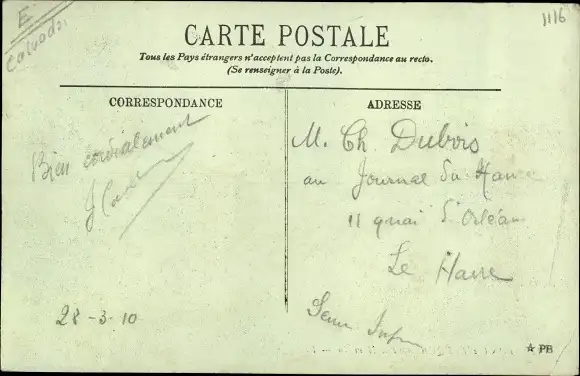 E
Calvados
1116
CARTE POSTALE
Tous les Pays étrangers n'acceptent pas la Correspondance au recto.
(Se renseigner à la Poste).
CORRESPONDANCE
ADRESSE
Bien cordialement
28-3-10
M. Ch. Dubois
au Journal du Havre
11 quai d'Orléans
Le Havre
Seine Infre
☆ PB